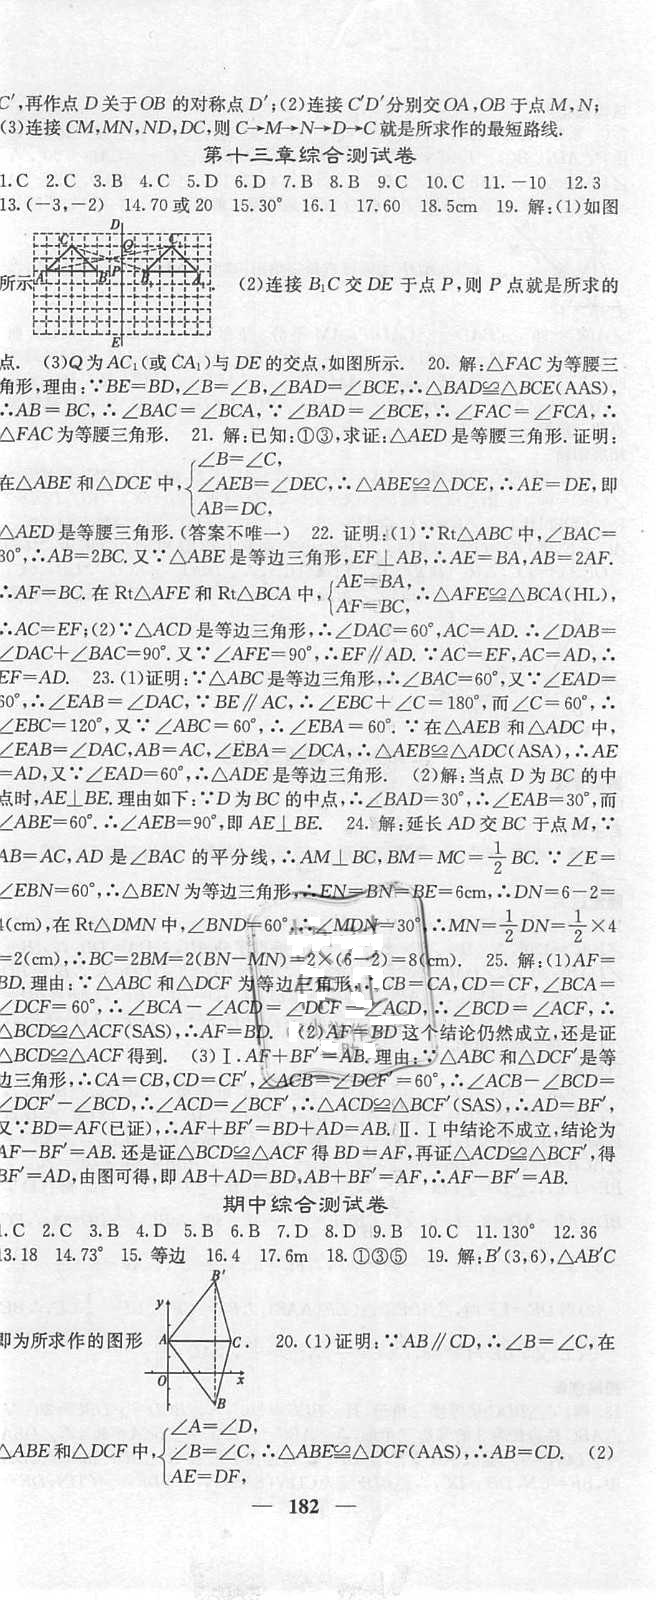 C′,再作点 D 关于OB 的对称点 D′;(2)连接 C′D′分别交OA,OB 于点 M,N;
(3)连接 CM,MN,ND,DC,则 C→M→N→D→C 就是所求作的最短路线.
第十三章综合测试卷
1.C 2.C 3.B 4.C 5.D 6.D 7.B 8.B 9.C 10.C 11.-10 12.3
13.(-3,-2) 14.70或20 15.30° 16.1 17.60 18.5cm 19. 解:(1)如图
D
C Q C₁
所示 A B P B₁ A₁ . (2)连接 B₁C 交 DE 于点 P,则 P 点就是所求的
E
点. (3)Q为AC₁(或CA₁)与DE的交点,如图所示. 20. 解:△FAC为等腰三
角形,理由:∵BE=BD,∠B=∠B,∠BAD=∠BCE,∴△BAD≌△BCE(AAS),
∴AB=BC,∴∠BAC=∠BCA,∵∠BAD=∠BCE,∴∠FAC=∠FCA,∴
△FAC为等腰三角形. 21. 解:已知:①③,求证:△AED是等腰三角形.证明:
∠B=∠C,
在△ABE和△DCE中,{∠AEB=∠DEC,∴△ABE≌△DCE,∴AE=DE,即
AB=DC,
△AED是等腰三角形.(答案不唯一) 22. 证明:(1)∵Rt△ABC中,∠BAC=
30°,∴AB=2BC.又∵△ABE是等边三角形,EF⊥AB,∴AE=BA,AB=2AF.
∴AF=BC.在Rt△AFE和Rt△BCA中,{AE=BA, AF=BC,∴△AFE≌△BCA(HL),
∴AC=EF;(2)∵△ACD是等边三角形,∴∠DAC=60°,AC=AD.∴∠DAB=
∠DAC+∠BAC=90°.又∵∠AFE=90°,∴EF∥AD.∵AC=EF,AC=AD,∴
EF=AD. 23.(1)证明:∵△ABC是等边三角形,∴∠BAC=60°,又∵∠EAD=
60°,∴∠EAB=∠DAC,∵BE∥AC,∴∠EBC+∠C=180°,而∠C=60°,∴
∠EBC=120°,又∵∠ABC=60°,∴∠EBA=60°.∵在△AEB和△ADC中,
∠EAB=∠DAC,AB=AC,∠EBA=∠DCA,∴△AEB≌△ADC(ASA),∴AE
=AD,又∵∠EAD=60°,∴△ADE是等边三角形. (2)解:当点 D 为 BC 的中
点时,AE⊥BE.理由如下:∵D为BC的中点,∴∠BAD=30°,∴∠EAB=30°,而
∠ABE=60°.∴∠AEB=90°,即AE⊥BE. 24. 解:延长 AD 交 BC 于点 M,∵
AB=AC,AD 是∠BAC 的平分线,∴AM⊥BC,BM=MC=1/2 BC.∵∠E=
∠EBN=60°,∴△BEN为等边三角形,∴EN=BN=BE=6cm,∴DN=6-2=
4(cm),在Rt△DMN中,∠BND=60°,∴∠MDN=30°,∴MN=1/2 DN=1/2×4
=2(cm),∴BC=2BM=2(BN-MN)=2×(6-2)=8(cm). 25. 解:(1)AF=
BD.理由:∵△ABC和△DCF为等边三角形,∴CB=CA,CD=CF,∠BCA=
∠DCF=60°,∴∠BCA-∠ACD=∠DCF-∠ACD,∴∠BCD=∠ACF,∴
△BCD≌△ACF(SAS),∴AF=BD. (2)AF=BD这个结论仍然成立,还是证
△BCD≌△ACF得到. (3)Ⅰ.AF+BF′=AB.理由:∵△ABC和△DCF′是等
边三角形,∴CA=CB,CD=CF′,∠ACB=∠DCF′=60°,∴∠ACB-∠BCD=
∠DCF′-∠BCD,∴∠ACD=∠BCF′,∴△ACD≌△BCF′(SAS),∴AD=BF′,
又∵BD=AF(已证),∴AF+BF′=BD+AD=AB.Ⅱ.Ⅰ中结论不成立,结论为
AF-BF′=AB.还是证△BCD≌△ACF得BD=AF,再证△ACD≌△BCF′,得
BF′=AD,由图可得,即AB+AD=BD,AB+BF′=AF,∴AF-BF′=AB.
期中综合测试卷
1.C 2.C 3.B 4.D 5.B 6.B 7.D 8.D 9.B 10.C 11.130° 12.36
13.18 14.73° 15. 等边 16.4 17.6m 18.①③⑤ 19. 解:B′(3,6),△AB′C
B′
y
即为所求作的图形 A C . 20.(1)证明:∵AB∥CD,∴∠B=∠C,在
O x
B
∠A=∠D,
△ABE和△DCF中,{∠B=∠C,∴△ABE≌△DCF(AAS),∴AB=CD. (2)
AE=DF,
— 182 —